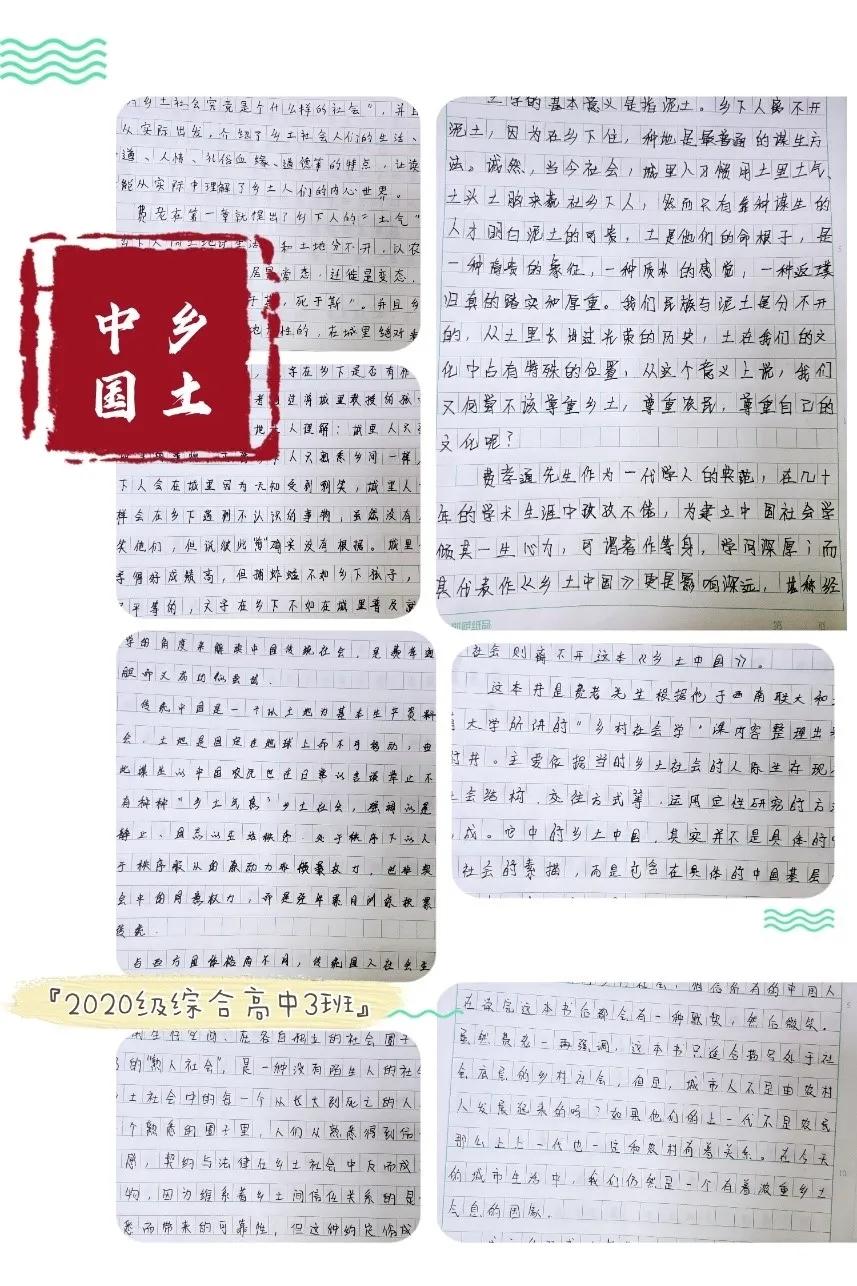 乡土社会究竟是个什么样的社会”，并且
从实际出发，介绍了乡土社会人们的生活、
道、人情、礼俗血缘、道德等的特点，让读
能从实际中理解了乡土人们的内心世界。
费老在第一章就提出了乡下人的“土气”
和土地分不开，以农
居是常态，迁徙是变态，
死于斯”。并且乡
性的，在城里绝对
中国
乡土
字在乡下是否有
人理解：城里人只
人只熟悉乡间一样，
下人会在城里因为无知受到嘲笑，城里人
样会在乡下遇到不认识的事物，虽然没有
笑他们，但说彼此“愚”确实没有根据。城里
学得好成绩高，但捕蚱蜢不如乡下孩子，
是平等的，文字在乡下不如在城里普及
学的角度来解读中国传统社会，是费孝通
传统中国是一个以土地为基本生产资料
会，土地是固定在地球上而不可移动，由
此谋生的中国农民也在日常以言谈举止不
有种种“乡土气息”乡土社会，强调以是
静止、固态以生活秩序，处于秩序下以人
于秩序服从的原动力
会中的同意权力，而是经年累月的家族累
传统．
与西方团体格局不同，传统国人社会生
『2020级综合高中3班』
的“熟人社会”，是一种没有陌生人的社会
土社会中的每一个从长大到死亡的人
个熟悉的圈子里，人们从熟悉得到信
愿，契约与法律在乡土社会中反而成
物，因为维系着乡土间信任关系的是
悉而带来的可靠性，但这种约定俗成
土字的基本意义是指泥土。乡下人离不开
泥土，因为在乡下住，种地是最普通的谋生方
法。诚然，当今社会，城里人才惯用土里土气、
土头土脑来藐视乡下人，然而只有靠种谋生的
人才明白泥土的可贵，土是他们的命根子，是
一种高贵的象征，一种质朴的感觉，一种返璞
归真的踏实和厚重。我们民族与泥土是分不开
的，从土里长出过光荣的历史，土在我们的文
化中占有特殊的位置，从这个意义上说，我们
又何尝不该尊重乡土，尊重农民，尊重自己的
文化呢？
费孝通先生作为一代学人的典范，在几十
年的学术生涯中孜孜不倦，为建立中国社会学
倾其一生心力，可谓著作等身，学问深厚；而
其代表作《乡土中国》更是影响深远，堪称经
社会则离不开这本《乡土中国》。
这本书是费老先生根据他于西南联大和
大学所讲的“乡村社会学”课内容整理出
的书。主要依据当时乡土社会的人际生存现
会结构、交往方式等，运用定性研究的方
成。它中的乡土中国，其实并不是具体的
社会的素描，而是包含在具体的中国基层
在读完这本书后都会有一种默契，然后微笑。
虽然费老一再强调，这本书只适合描写处于社
会底层的乡村社会，但是，城市人不是由农村
人发展起来的吗？如果他们的上一代不是农民
那么上上一代也一定和农村有着关系。在今天
的城市生活中，我们仍然是一个有着浓重乡土
气息的国家。